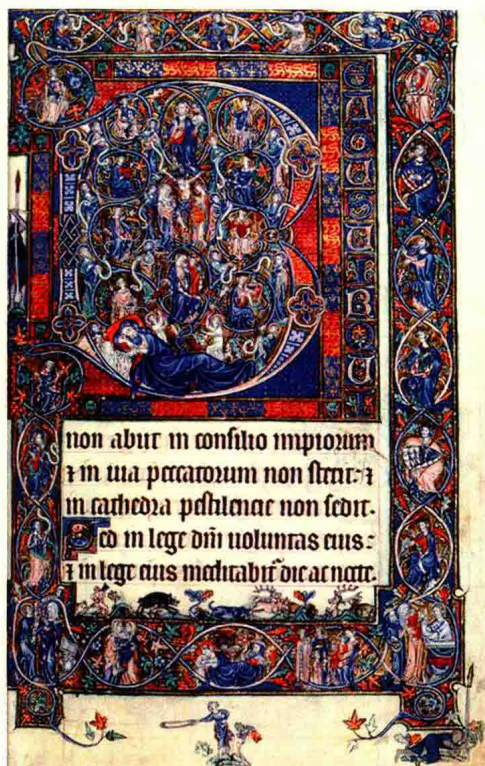 B
EATUS UIR QUI
non abiit in consilio impiorum
⁊ in uia peccatorum non stetit: ⁊
in cathedra pestilencie non sedit.
Sed in lege dñi uoluntas eius:
⁊ in lege eius meditabit᷑ die ac nocte.